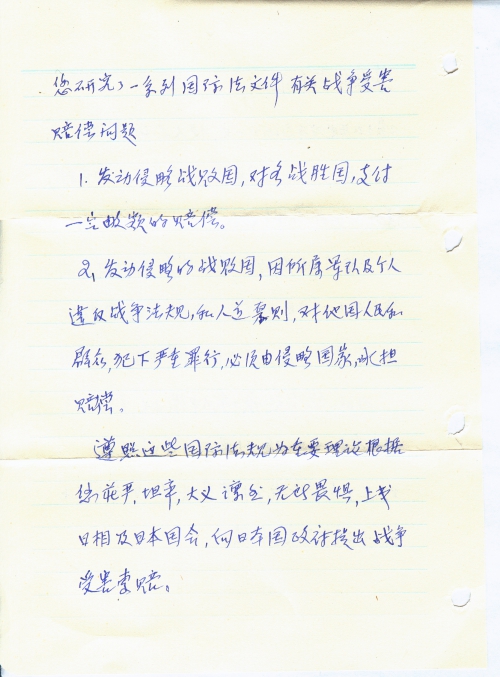 您研究了一系列国际法文件有关战争受害
赔偿问题
1. 发动侵略战败国,对各战胜国,支付
一定数额的赔偿。
2, 发动侵略的战败国,因所属军队及个人
违反战争法规,和人道原则,对他国人民和
群众,犯下严重罪行,必须由侵略国家,承担
赔偿。
遵照这些国际法规为主要理论根据
您庄严,坦率,大义凛然,无所畏惧,上书
日相及日本国会,向日本国政府提出战争
受害索赔。